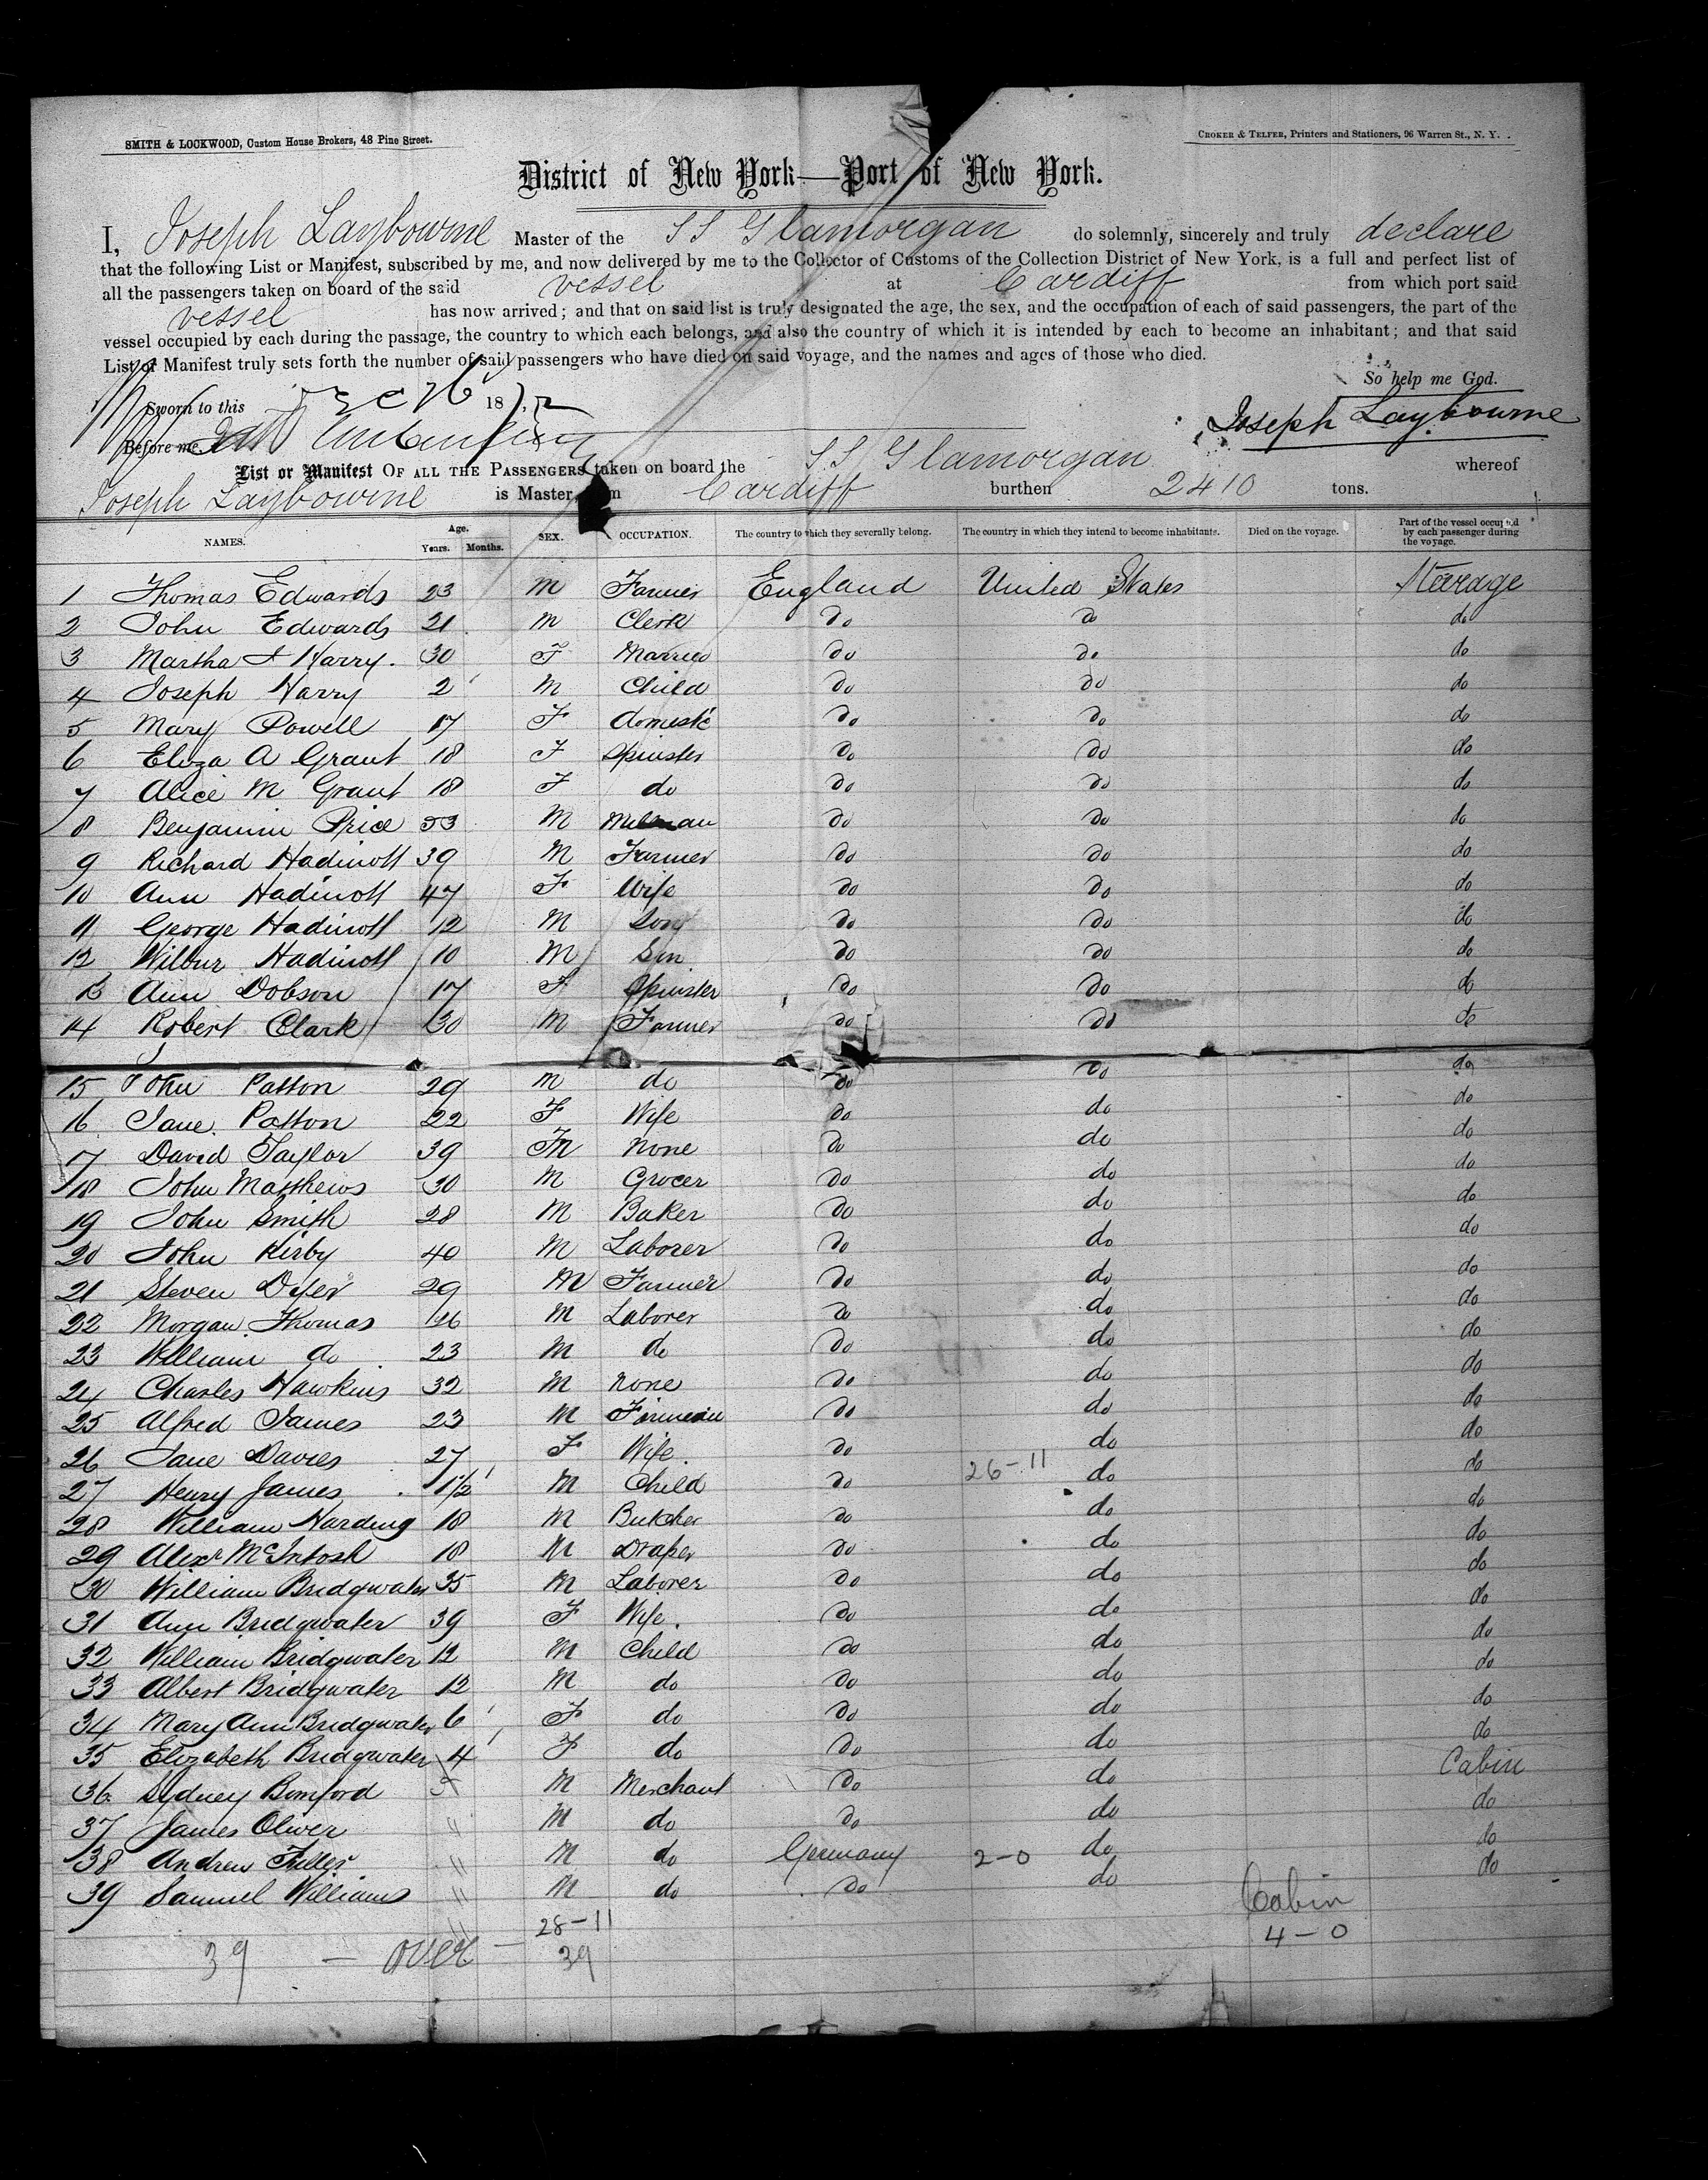 SMITH & LOCKWOOD, Custom House Brokers, 48 Pine Street. CROKER & TELFER, Printers and Stationers, 96 Warren St., N. Y.
District of New York—Port of New York.
I, Joseph Laybourne Master of the SS Glamorgan do solemnly, sincerely and truly declare
that the following List or Manifest, subscribed by me, and now delivered by me to the Collector of Customs of the Collection District of New York, is a full and perfect list of
all the passengers taken on board of the said vessel at Cardiff from which port said
vessel has now arrived; and that on said list is truly designated the age, the sex, and the occupation of each of said passengers, the part of the
vessel occupied by each during the passage, the country to which each belongs, and also the country of which it is intended by each to become an inhabitant; and that said
List or Manifest truly sets forth the number of said passengers who have died on said voyage, and the names and ages of those who died.
So help me God.
Sworn to this 18 Joseph Laybourne
Before me
List or Manifest OF ALL THE PASSENGERS taken on board the SS Glamorgan whereof
Joseph Laybourne is Master, Cardiff burthen 2410 tons.
NAMES. Age. Years. Months. SEX. OCCUPATION. The country to which they severally belong. The country in which they intend to become inhabitants. Died on the voyage. Part of the vessel occupied by each passenger during the voyage.
1 Thomas Edwards 23 M Farmer England United States Steerage
2 John Edwards 21 M Clerk Do Do do
3 Martha J Harry. 30 F Married Do Do do
4 Joseph Harry 2 M Child Do Do do
5 Mary Powell 17 F domestic Do Do do
6 Eliza A Grant 18 F Spinster Do Do do
7 Alice M Grant 18 F do Do Do do
8 Benjamin Price 53 M Do Do do
9 Richard Hadinott 39 M Farmer Do Do do
10 Ann Hadinott 47 F Wife Do Do do
11 George Hadinott 12 M Son Do Do do
12 Wilbur Hadinott 10 M Son Do Do do
13 Ann Dobson 17 F Spinster Do Do do
14 Robert Clark 30 M Farmer Do Do do
15 John Patton 29 M do Do Do do
16 Jane Patton 22 F Wife Do do do
17 David Taylor 39 M None Do do do
18 John Matthews 30 M Grocer Do do do
19 John Smith 28 M Baker Do do do
20 John Kirby 40 M Laborer Do do do
21 Steven Dyer 29 M Farmer Do do do
22 Morgan Thomas 26 M Laborer Do do do
23 William do 23 M do Do do do
24 Charles Hawkins 32 M None Do do do
25 Alfred James 23 M Do do do
26 Jane Davies 27 F Wife. Do do do
27 Henry James 1½ M Child Do 26-11 do do
28 William Harding 18 M Butcher Do do do
29 Alexr McIntosh 18 M Draper Do do do
30 William Bridgwater 35 M Laborer Do do do
31 Ann Bridgwater 39 F Wife. Do do do
32 William Bridgwater 12 M Child Do do do
33 Albert Bridgwater 12 M do Do do do
34 Mary Ann Bridgwater 6 F do Do do do
35 Elizabeth Bridgwater 4 F do Do do do
36 Sydney Bomford M Merchant Do do Cabin
37 James Oliver " M do Do do do
38 Andrew " M do Germany 2-0 do do
39 Samuel Williams " M do Do do do
28-11 Cabin
39 — over — 39 4-0